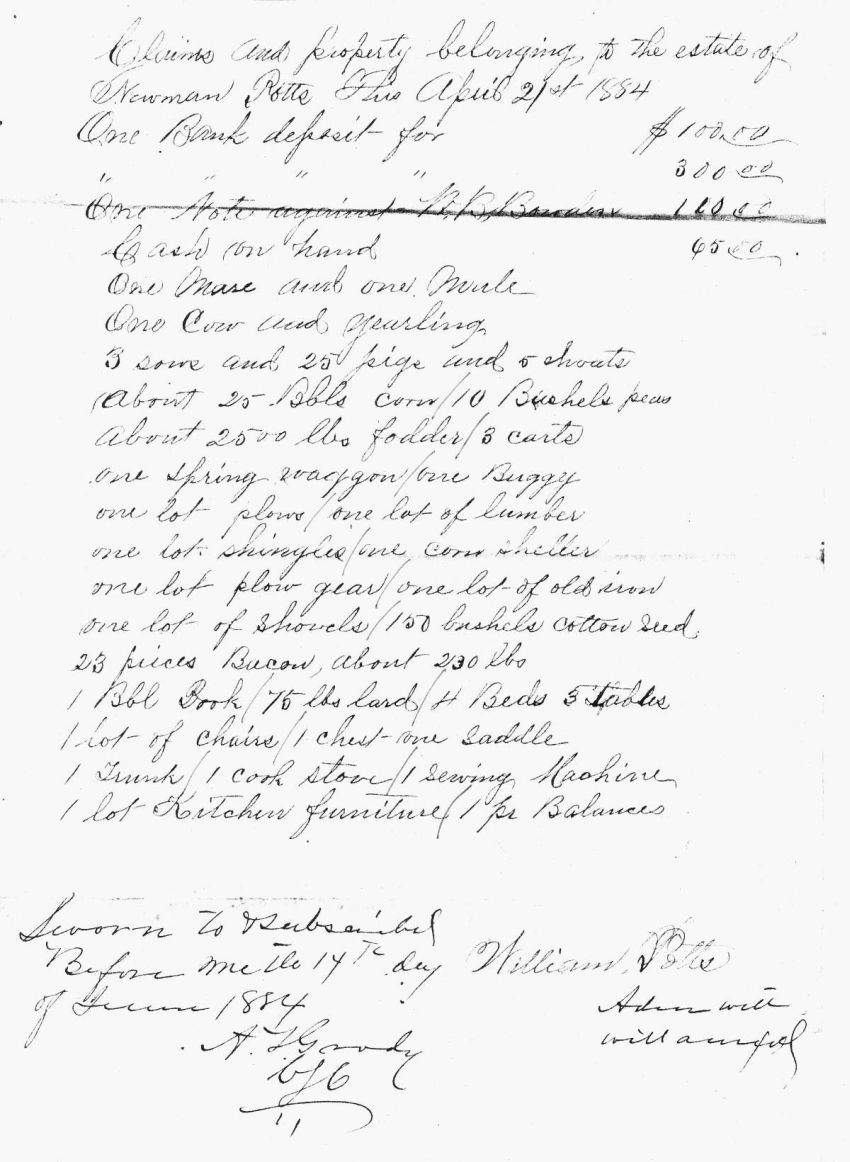 Claims and property belonging to the estate of
Newman Potts This April 21st 1884
One Bank deposit for $100.00
" " " " 300 00
One Note against B. Bowden 110 00
Cash on hand 65 00
One Mare and one Mule
One Cow and yearling
3 sows and 25 pigs and 5 shoats
About 25 Bbls corn / 10 Bushels peas
About 2500 lbs fodder / 3 carts
one spring waggon / one Buggy
one lot plows / one lot of lumber
one lot shingles / one corn sheller
one lot plow gear / one lot of old iron
one lot of shovels / 150 bushels cotton seed
23 pieces Bacon, about 230 lbs
1 Bbl Pork / 75 lbs lard / 4 Beds 5 tables
1 lot of chairs / 1 chest one saddle
1 Trunk / 1 cook stove / 1 sewing Machine
1 lot Kitchen furniture / 1 pr Balances
Sworn to & Subscribed
Before me the 14th day William Potts
of June 1884 Adm with
will annexed
A. F. Grady
CSC